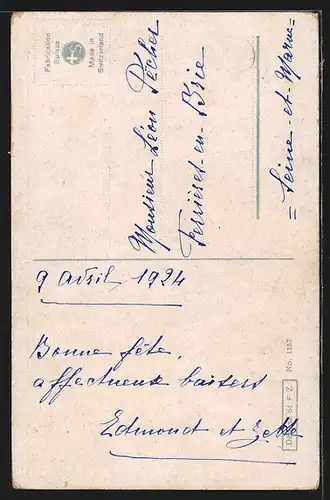 Fabrication
Suisse
Made in
Switzerland
Monsieur Léon Pécher
Ferrières-en-Brie
= Seine-et-Marne =
9 avril 1924
Bonne fête,
affectueux baisers
Edmond et
No. 1157